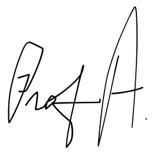 Prof A.